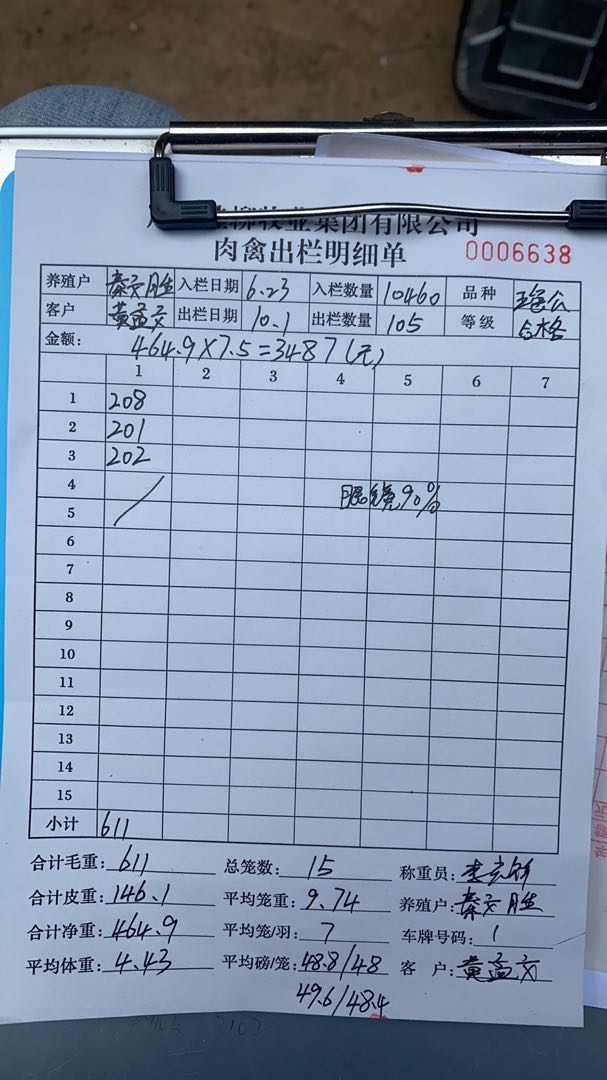 柳牧业集团有限公司
肉禽出栏明细单 0006638
养殖户 秦天胜 入栏日期 6.23 入栏数量 10460 品种
客户 黄孟文 出栏日期 10.1 出栏数量 105 等级 合格
金额: 464.9×7.5=3487(元)
1 2 3 4 5 6 7
1 208
2 201
3 202
4 90%
5
6
7
8
9
10
11
12
13
14
15
小计 611
合计毛重: 611 总笼数: 15 称重员:
合计皮重: 146.1 平均笼重: 9.74 养殖户: 秦天胜
合计净重: 464.9 平均笼/羽: 7 车牌号码: 1
平均体重: 4.43 平均磅/笼: 48.8/48 客 户: 黄孟文
49.6/48.4